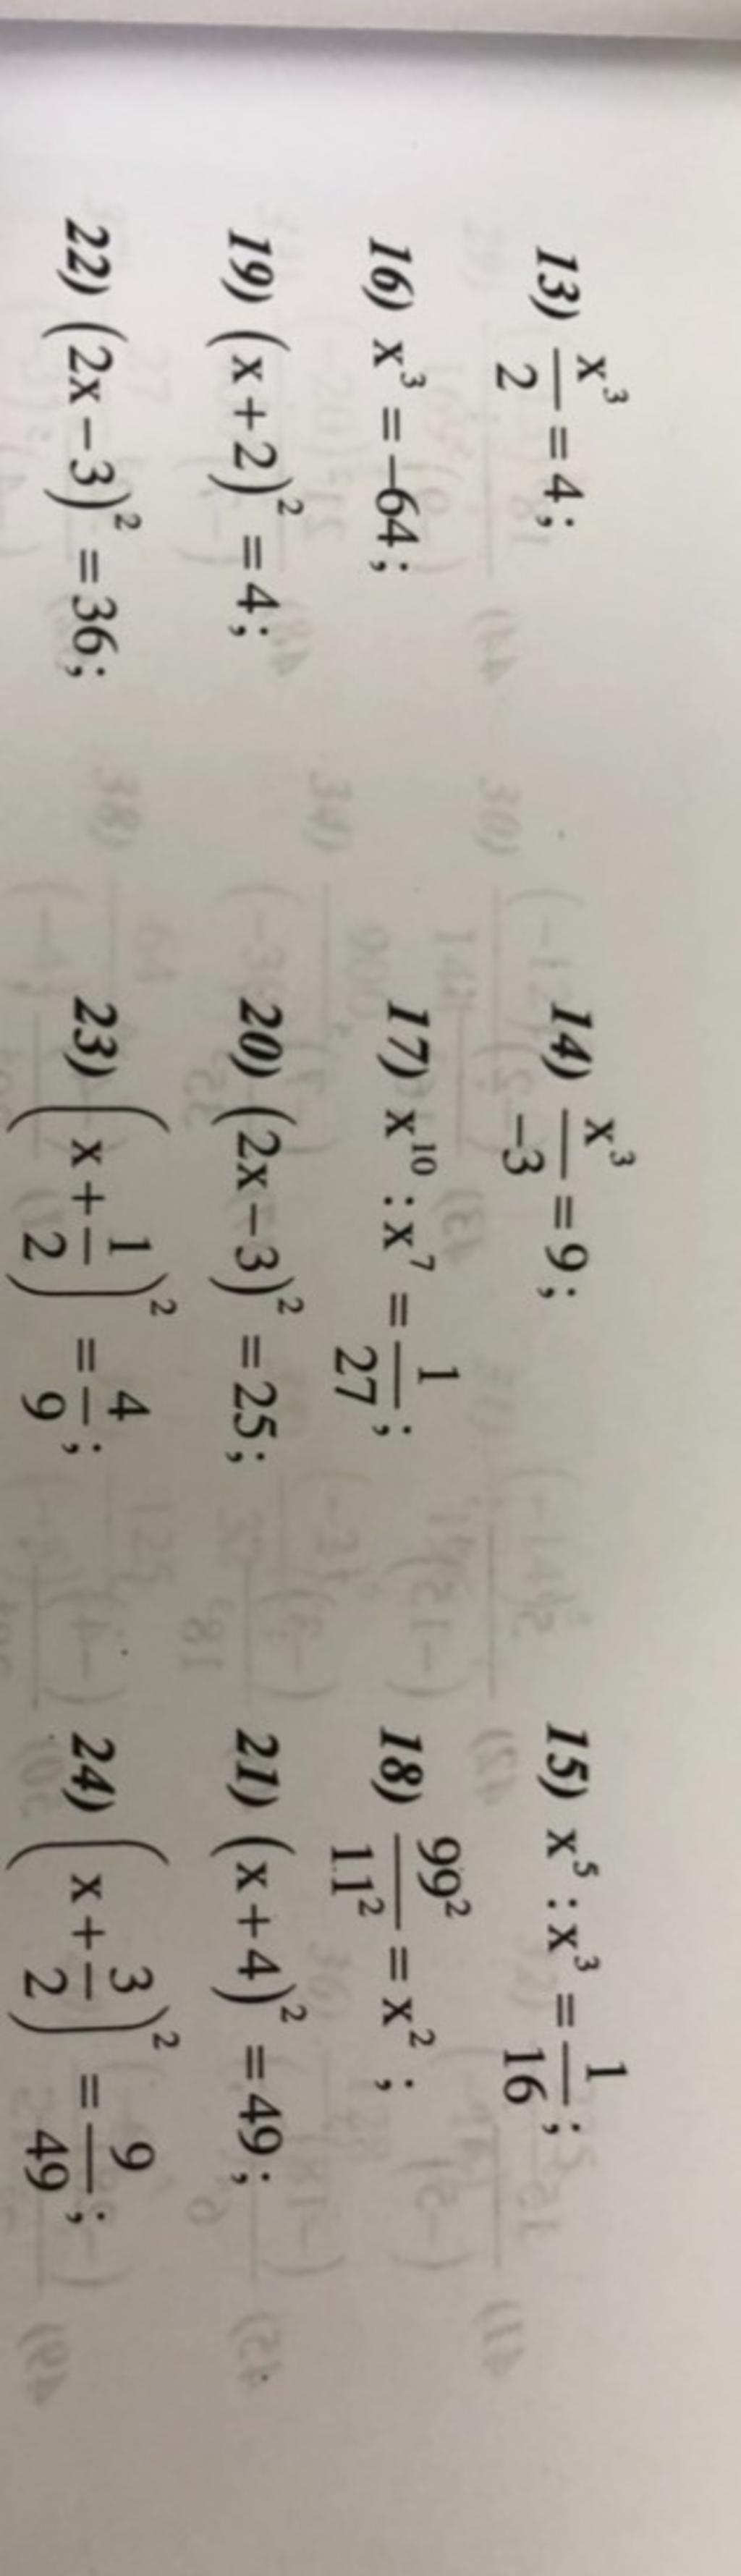 13) x³/2 = 4; 14) x³/−3 = 9; 15) x⁵ : x³ = 1/16;
16) x³ = −64; 17) x¹⁰ : x⁷ = 1/27; 18) 99²/11² = x²;
19) (x + 2)² = 4; 20) (2x − 3)² = 25; 21) (x + 4)² = 49;
22) (2x − 3)² = 36; 23) (x + 1/2)² = 4/9; 24) (x + 3/2)² = 9/49;